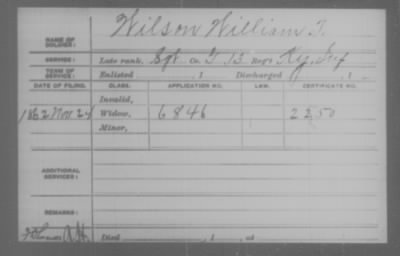 Wilson William T.
NAME OF SOLDIER:
SERVICE: Late rank, Sgt Co. G 13 Reg't Ky. Inf
TERM OF SERVICE: Enlisted , 1 Discharged , 1
DATE OF FILING. CLASS. APPLICATION NO. LAW. CERTIFICATE NO.
Invalid,
1862 Nov 24 Widow, 6846 2250
Minor,
ADDITIONAL SERVICES:
REMARKS:
Died , 1 , at